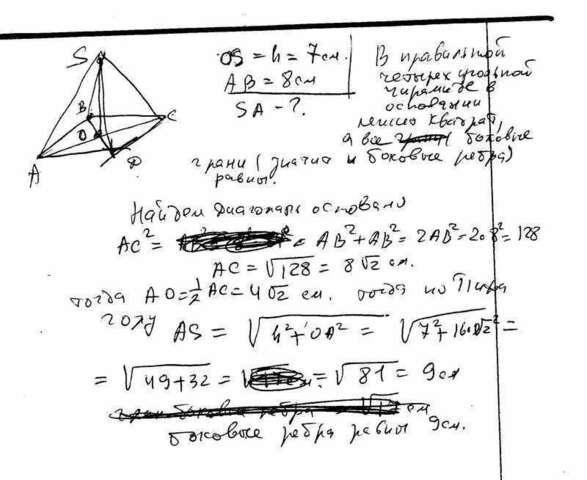 S
B
C
O
A
D
OS = h = 7см.
AB = 8см
SA - ?
В правильной
четырехугольной
пирамиде в
основании
лежит квадрат,
а все боковые
грани (значит и боковые ребра)
равны.
Найдем диагональ основано
AC² = AB² + AB² = 2AB² = 2·8² = 128
AC = √128 = 8√2 см.
тогда AO = ½ AC = 4√2 см. тогда по Пифа
гору AS = √h² + OA² = √7² + 16·√2² =
= √49 + 32 = √81 = 9см
боковые ребра равны 9см.